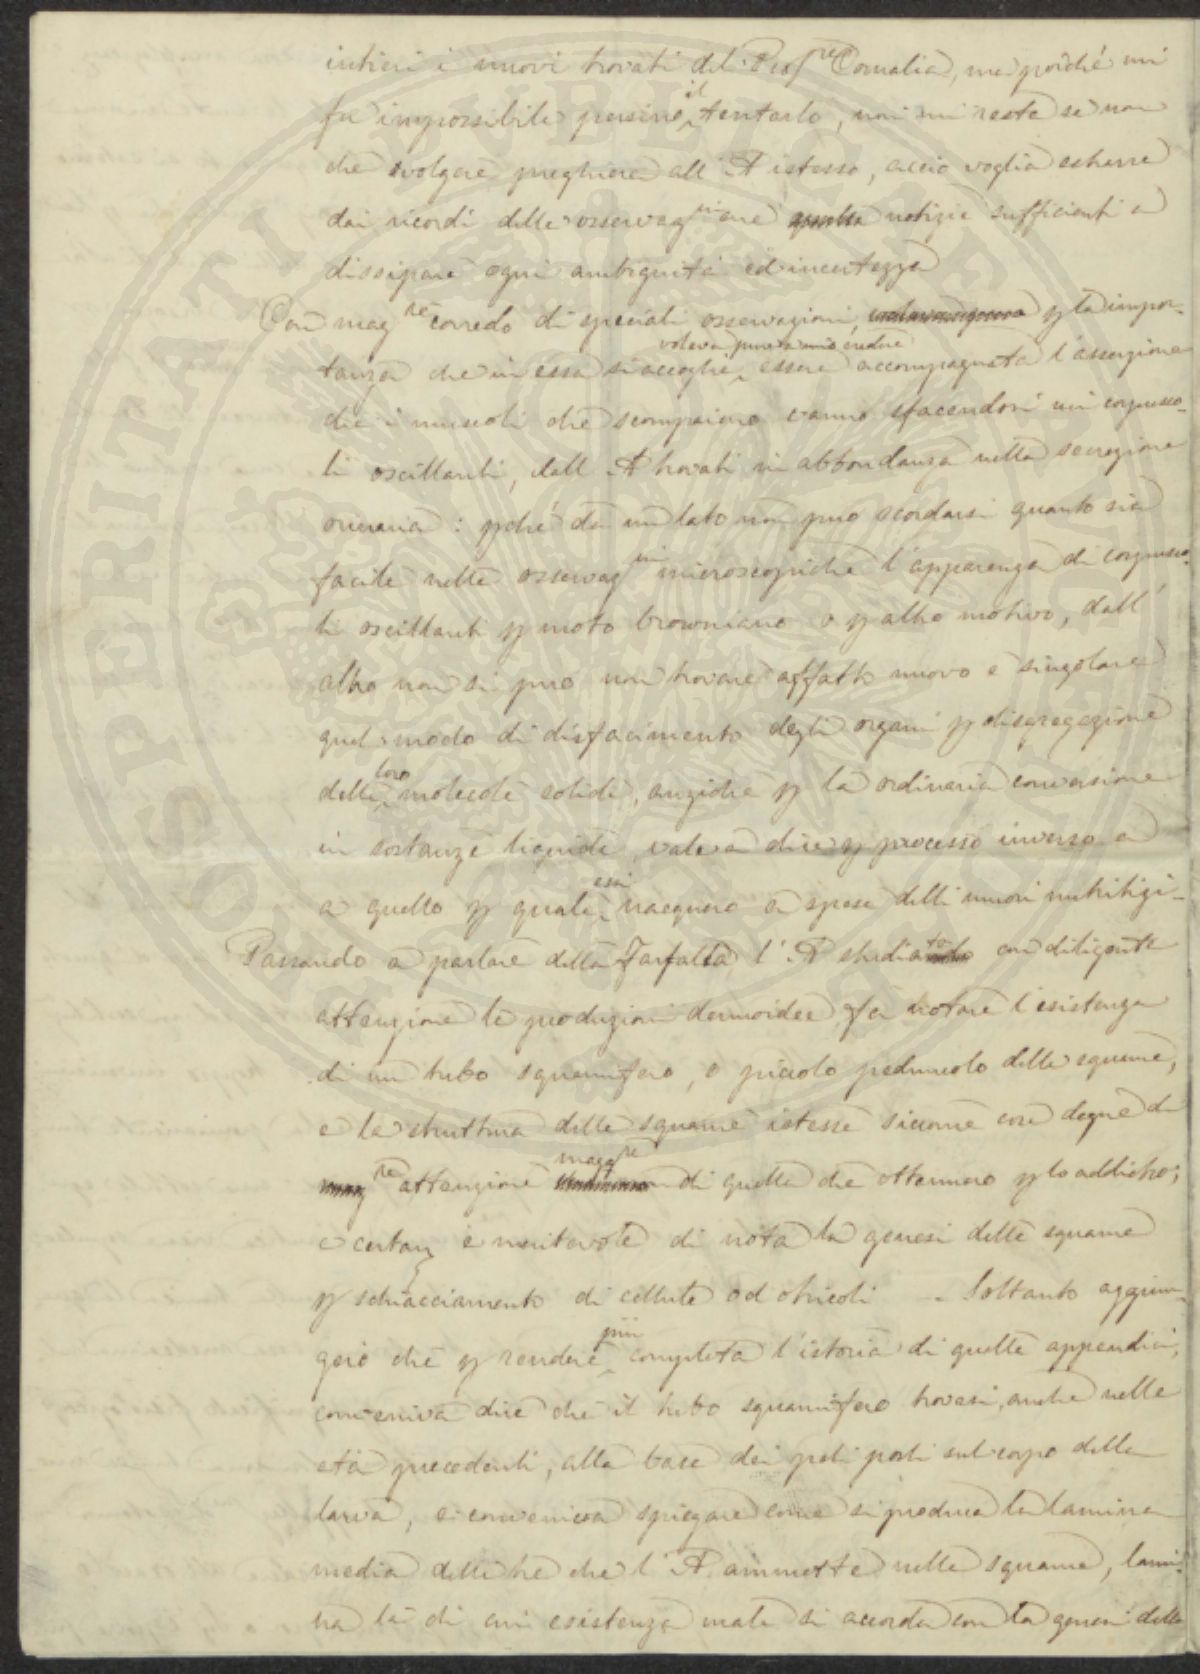 intieri i nuovi trovati del Prof.re Cornalia, ma poiché mi
fu impossibile persino il tentarlo, non mi resta se non
che svolgere preghiera all'A istesso, acciò voglia estrarre
dai ricordi delle osservaz.ni notizie sufficienti a
dissipare ogni ambiguità ed incertezza
Con mag.re corredo di speciali osservazioni, p la impor-
tanza che in essa si accoglie, voleva pure a mio credere essere accompagnata l'asserzione
che i muscoli che scompaiono vanno sfacendosi in corpusco-
li oscillanti, dall'A trovati in abbondanza nella secrezione
orinaria: pché da un lato non può scordarsi quanto sia
facile nelle osservaz.ni microscopiche l'apparenza di corpusco-
li oscillanti p moto browniano o p altro motivo, dall'
altro non si può non trovare affatto nuovo e singolare
quel modo di disfacimento degli organi p disgregazione
delle loro molecole solide, anziché p la ordinaria conversione
in sostanze liquide, vale a dire p processo inverso a
a quello p quale essi nacquero a spese delli umori nutritizi-
Passando a parlare della Farfalla l'A studiato con diligente
attenzione le produzioni dermoidee fa notare l'esistenza
di un tubo squamifero, o piccolo peduncolo delle squame,
e la struttura delle squame istesse siccome cose degne di
attenzione mag.re di quella che ottennero p lo addietro;
e certam è meritevole di nota la genesi delle squame
p schiacciamento di cellule od otricoli - Soltanto aggiun-
gerò che p rendere più completa l'istoria di quelle appendici,
conveniva dire che il tubo squamifero trovasi, anche nelle
età precedenti, alla base dei peli posti sul corpo della
larva, e conveniva spiegare come si produca la lamina
media delle tre che l'A. ammette nelle squame, lami-
na la di cui esistenza male si accorda con la genesi delle
SOSPERITATI PUBLICAE AUGENDAE